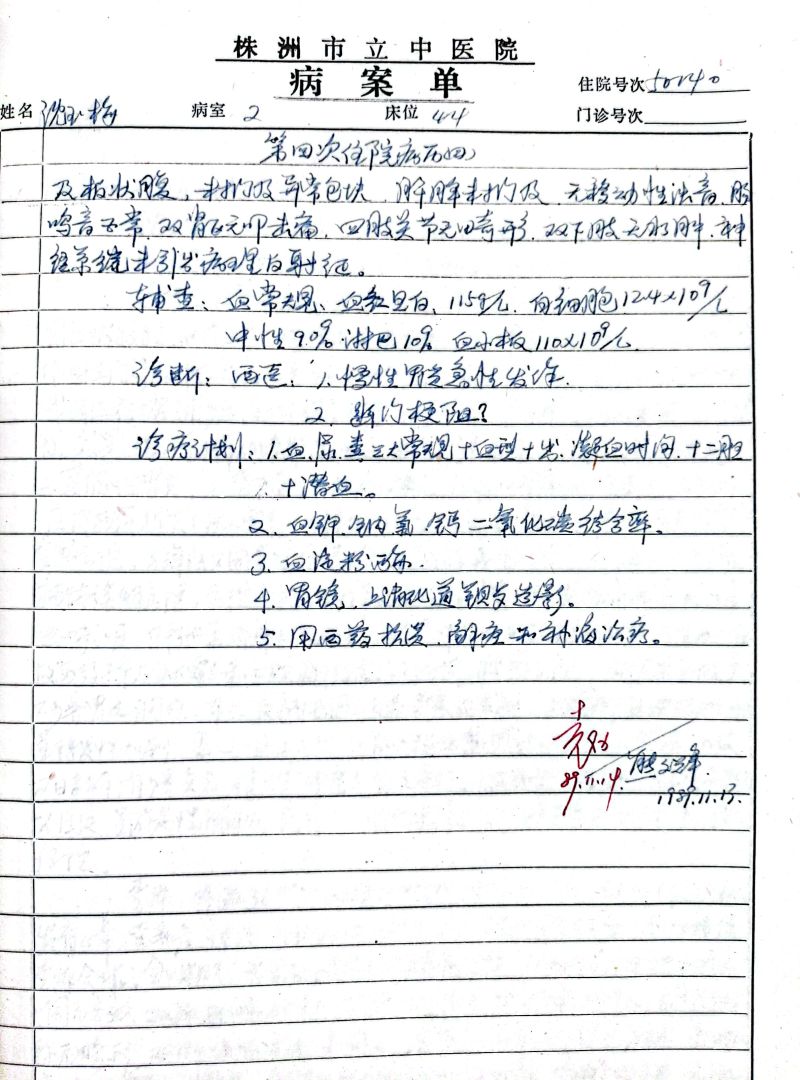 株洲市立中医院
病案单
住院号次 50140
姓名 沈玉梅 病室 2 床位 44 门诊号次
第四次住院病历(四)
及板状腹,未扪及异常包块,肝脾未扪及,无移动性浊音,肠
鸣音正常,双肾区无叩击痛,四肢关节无畸形,双下肢无水肿,神
经系统未引出病理反射征。
辅查:血常规、血红蛋白,115g/L,白细胞12.4×10⁹/L
中性90% 淋巴10% 血小板110×10⁹/L
诊断:西医:1.慢性胃炎急性发作
2.幽门梗阻?
诊疗计划:1.血、尿、粪三大常规+血型+出、凝血时间,十二胆
+潜血。
2.血钾、钠、氯、钙、二氧化碳结合率。
3.血淀粉酶.
4.胃镜,上消化道钡餐造影。
5.用西药抗炎,解痉和补液治疗。
89.11.14
1989.11.13.